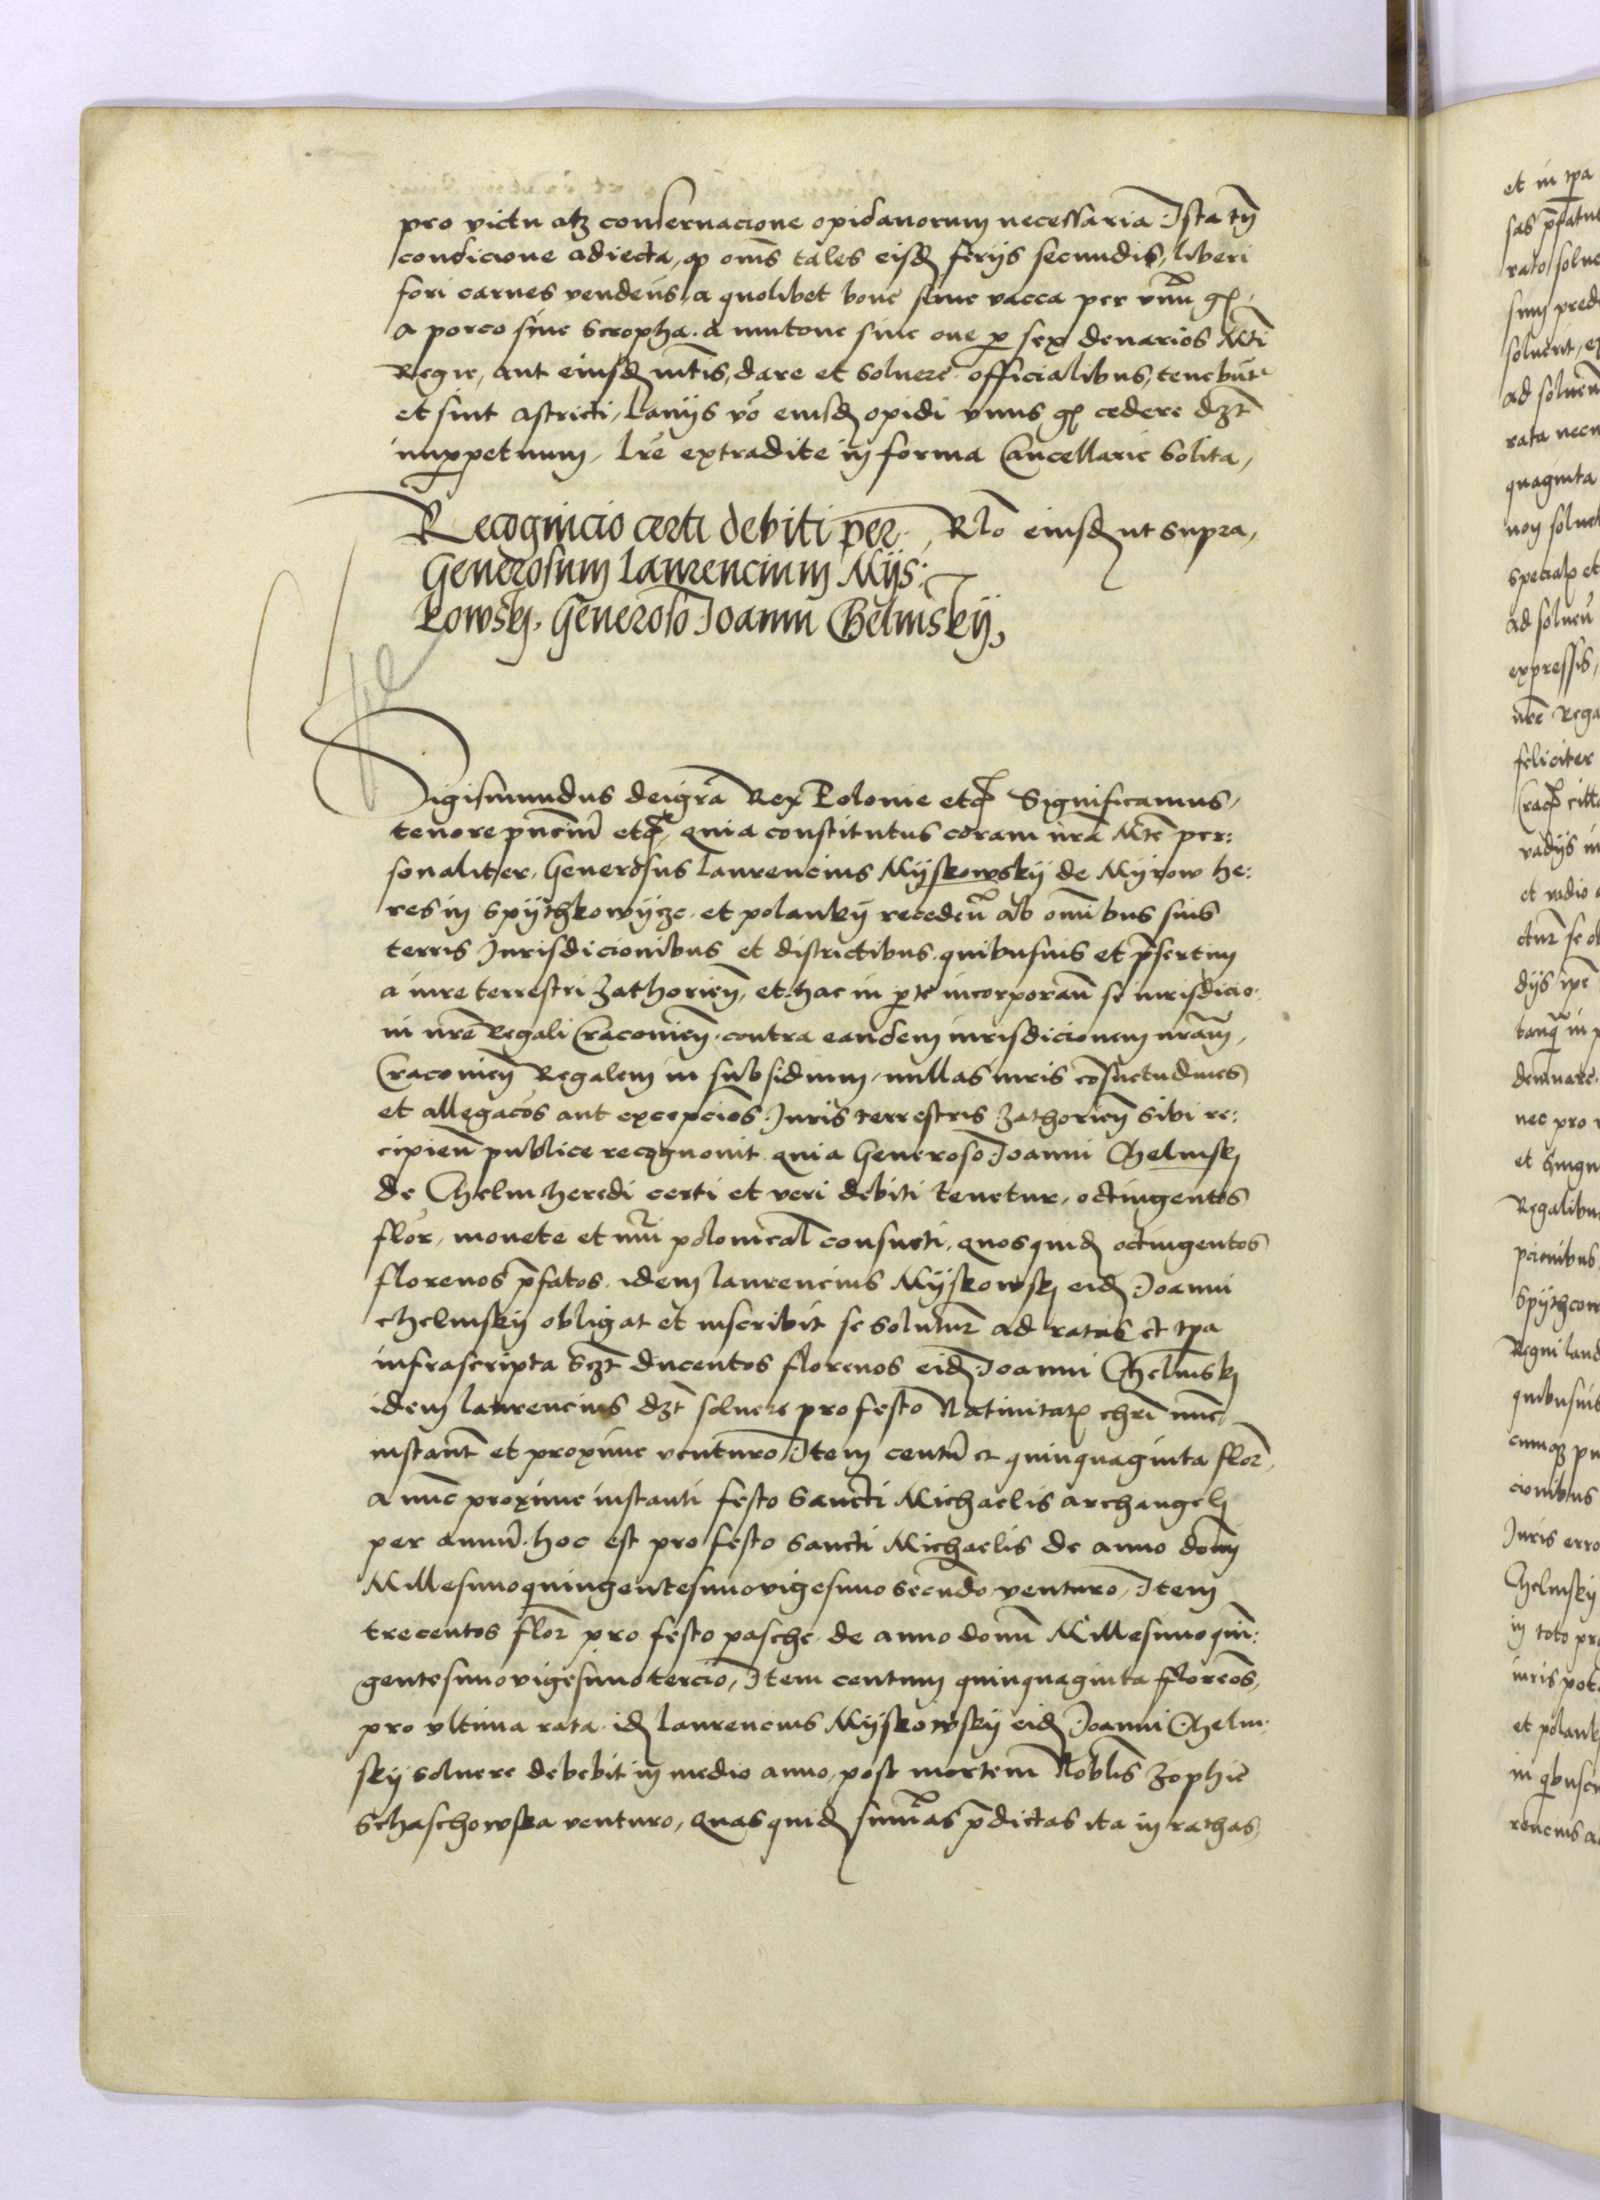 pro victu atq conseruacione opidanorum necessaria. Ista tn̄
condicione adiecta, qp om̄s tales eisd feriis secundis, liberi
fori carnes vendēns, a quolibet boue siue vacca per vnū gr,
a porco siue scropha. a mutone siue oue p̱ sex denarios Mti
Regie, aut eiusd mtis, dare et soluere officialibus, tenebūt
et sint astricti, Laniis vō eiusd opidi vnus gr cedere dzt
inpp̱etuum, Lr̄e extradite in forma Cancellarie solita,
Recognicio certi debiti per
Generosum Laurencium Mijs:
kowskj. Generoso Joanni Chelmskij,
Rlo eiusd ut supra,
Sigismundus dei gr̄a Rex Polonie etc Significamus,
tenore pn̄ciū etc, quia constitutus coram nr̄a Mte per:
sonaliter, Generosus Laurencius Mijskowskij de Myrow he:
res in Spijthkowijcze et polankij recedēn ab omībus suis
terris Jurisdicionibus et districtibus quibusuis et p̄sertim
a iure terrestri Zathoriēn, et hac in p̱te incorporan̄ se iurisdicio
ni nr̄e Regali Cracouiēn contra eandem iurisdicionem nr̄am,
Cracouiēn Regalem in subsidium, nullas iuris cōsuetudines
et allegacōs aut excepciōs Juris terrestris Zathoriēn sibi re:
cipiēn publice recognouit quia Generoso Joanni Chelmskj
de Chelm heredi certi et veri debiti tenetur, octingentos
flor, monete et nūi polonicāl consueti, quos quid octingentos
florenos p̄fatos idem Laurencius Mijskowskj eid Joanni
chelmskij obligat et inscribit se solutur̄ ad ratas et tp̱a
infrascripta szt ducentos florenos eid Joanni Chelmskj
idem Laurencius dzt soluere pro festo Natiuitat chr̄i nūc
instant̄ et proxime venturo, Item centū et quinquaginta flor,
a nūc proxime instanti festo Sancti Michaelis archangelj
per annū hoc est pro festo Sancti Michaelis de anno dōni
Millesimoquingentesimovigesimo secundo venturo, Item
trecentos flor̄ pro festo pasche de anno domī Millesimoquin:
gentesimovigesimotercio, Item centum quinquaginta floreōs,
pro vltima rata id Laurencius Mijskowskij eid Joanni Chelm:
skij soluere debebit in medio anno, post mortem Nobl̄is Zophie
Schaschowska venturo, Quas quid sum̄as p̄dictas ita in rathas,
et in tp̱a
sas p̄fatut
rato solue
sum pred
soluerit, e
ad soluen
rata necn
quaginta
non soluet
specialr et
ad soluēn
expressis,
nr̄e Rega
feliciter
vadijs in
et vadio
dijs ipe
tanq in
demnare
nec pro
et singu
Regalibu
pcionibus
Spijthcow
Regni land
quibusuis
cumq pu
cionibus
Juris erro
Chelmskij
in toto pro
iuris pot
et polank
in qbuscu
rencius a